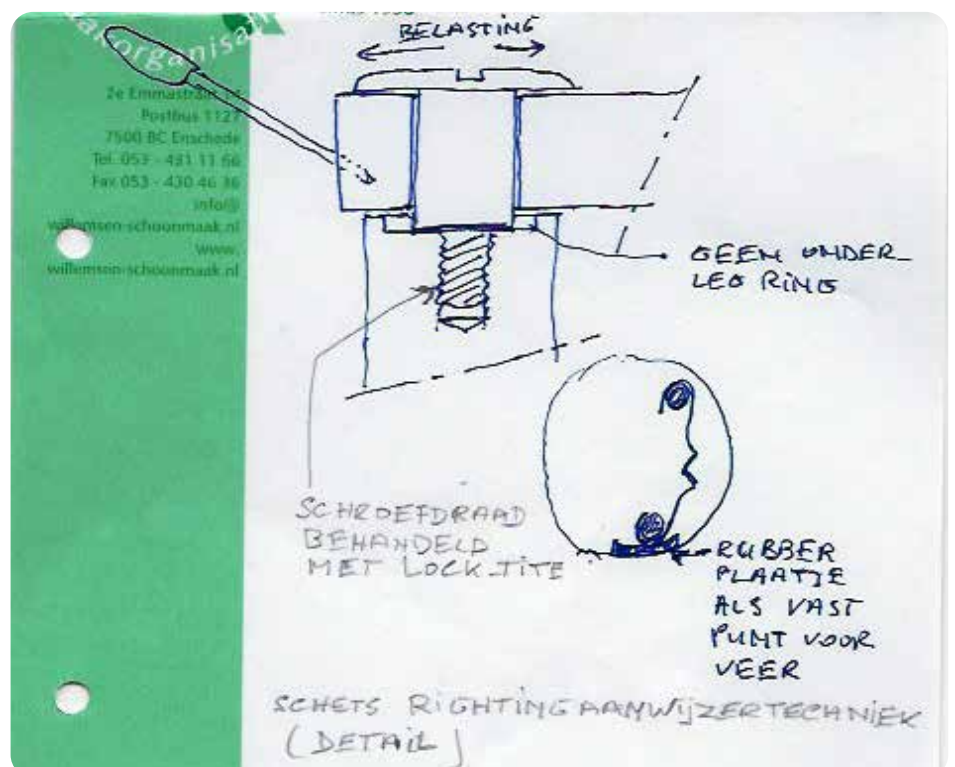 akorganisati
2e Emmastraat
Postbus 1127
7500 BC Enschede
Tel. 053 - 431 11 66
Fax 053 - 430 46 36
info@
willemsen-schoonmaak.nl
www.
willemsen-schoonmaak.nl
BELASTING
GEEN ONDER-
LEG RING
SCHROEFDRAAD
BEHANDELD
MET LOCK-TITE
RUBBER
PLAATJE
ALS VAST
PUNT VOOR
VEER
SCHETS RIGHTINGAANWIJZERTECHNIEK
(DETAIL)